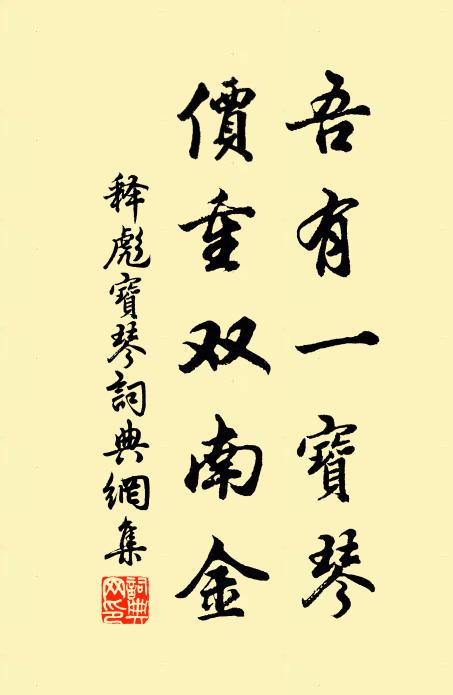 吾有一寶琴
價重双南金
释彪寶琴詞典網集
詞典网印